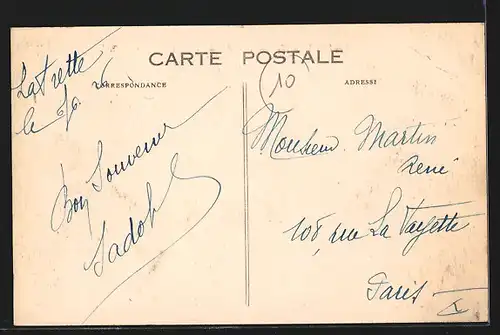 CARTE POSTALE
CORRESPONDANCE
ADRESSE
La Frette
le
Bon Souvenir
10
Monsieur Martin
René
108, rue La Fayette
Paris X